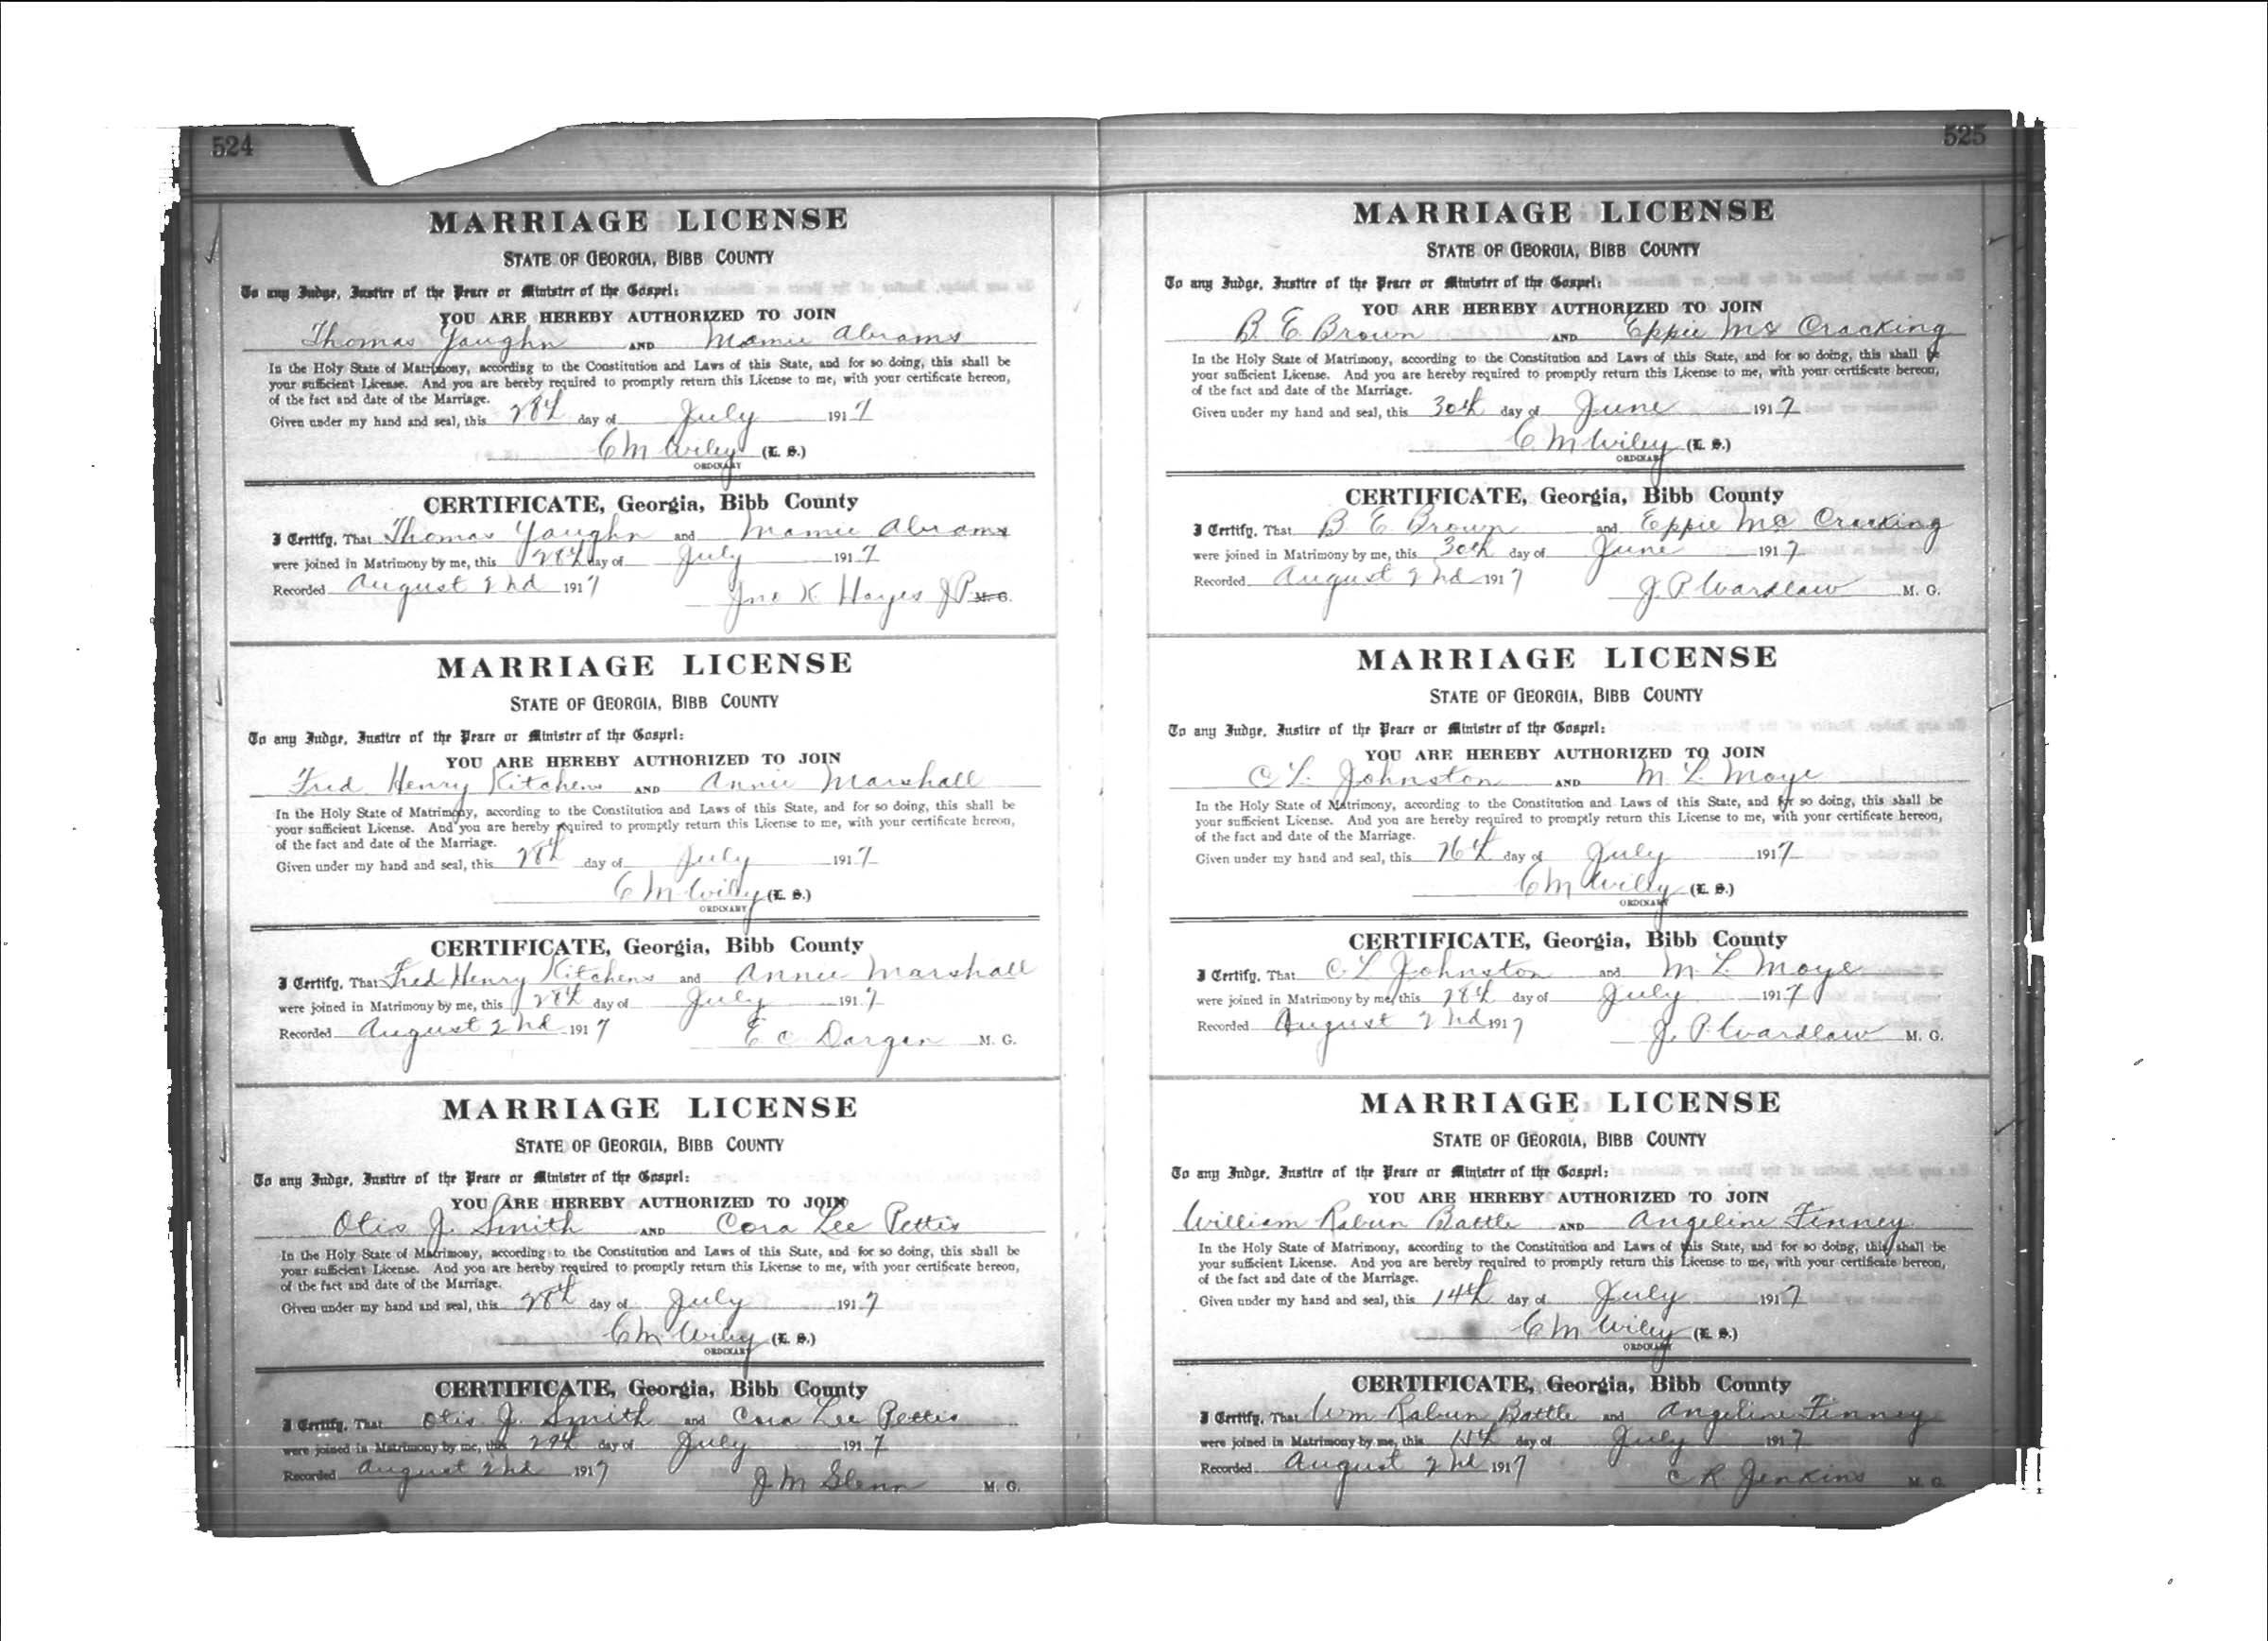 524
MARRIAGE LICENSE
STATE OF GEORGIA, BIBB COUNTY
To any Judge, Justice of the Peace or Minister of the Gospel:
YOU ARE HEREBY AUTHORIZED TO JOIN
Thomas Yaughn AND Mamie Abrams
In the Holy State of Matrimony, according to the Constitution and Laws of this State, and for so doing, this shall be
your sufficient License. And you are hereby required to promptly return this License to me, with your certificate hereon,
of the fact and date of the Marriage.
Given under my hand and seal, this 28th day of July 1917
C M Wiley (L. S.)
ORDINARY
CERTIFICATE, Georgia, Bibb County
I Certify, That Thomas Yaughn and Mamie Abrams
were joined in Matrimony by me, this 28th day of July 1917
Recorded August 2nd 1917 Jno K Hayes J P M. G.
MARRIAGE LICENSE
STATE OF GEORGIA, BIBB COUNTY
To any Judge, Justice of the Peace or Minister of the Gospel:
YOU ARE HEREBY AUTHORIZED TO JOIN
Fred Henry Kitchens AND Annie Marshall
In the Holy State of Matrimony, according to the Constitution and Laws of this State, and for so doing, this shall be
your sufficient License. And you are hereby required to promptly return this License to me, with your certificate hereon,
of the fact and date of the Marriage.
Given under my hand and seal, this 28th day of July 1917
C M Wiley (L. S.)
ORDINARY
CERTIFICATE, Georgia, Bibb County
I Certify, That Fred Henry Kitchens and Annie Marshall
were joined in Matrimony by me, this 28th day of July 1917
Recorded August 2nd 1917 E C Dargan M. G.
MARRIAGE LICENSE
STATE OF GEORGIA, BIBB COUNTY
To any Judge, Justice of the Peace or Minister of the Gospel:
YOU ARE HEREBY AUTHORIZED TO JOIN
Otis J. Smith AND Cora Lee Pettis
In the Holy State of Matrimony, according to the Constitution and Laws of this State, and for so doing, this shall be
your sufficient License. And you are hereby required to promptly return this License to me, with your certificate hereon,
of the fact and date of the Marriage.
Given under my hand and seal, this 28th day of July 1917
C M Wiley (L. S.)
ORDINARY
CERTIFICATE, Georgia, Bibb County
I Certify, That Otis J. Smith and Cora Lee Pettis
were joined in Matrimony by me, this 29th day of July 1917
Recorded August 2nd 1917 J M Glenn M. G.
525
MARRIAGE LICENSE
STATE OF GEORGIA, BIBB COUNTY
To any Judge, Justice of the Peace or Minister of the Gospel:
YOU ARE HEREBY AUTHORIZED TO JOIN
B. E Brown AND Eppie Mc Cracking
In the Holy State of Matrimony, according to the Constitution and Laws of this State, and for so doing, this shall be
your sufficient License. And you are hereby required to promptly return this License to me, with your certificate hereon,
of the fact and date of the Marriage.
Given under my hand and seal, this 30th day of June 1917
C. M Wiley (L. S.)
ORDINARY
CERTIFICATE, Georgia, Bibb County
I Certify, That B E Brown and Eppie Mc Cracking
were joined in Matrimony by me, this 30th day of June 1917
Recorded August 2nd 1917 J. P Wardlaw M. G.
MARRIAGE LICENSE
STATE OF GEORGIA, BIBB COUNTY
To any Judge, Justice of the Peace or Minister of the Gospel:
YOU ARE HEREBY AUTHORIZED TO JOIN
C L. Johnston AND M. L. Moye
In the Holy State of Matrimony, according to the Constitution and Laws of this State, and for so doing, this shall be
your sufficient License. And you are hereby required to promptly return this License to me, with your certificate hereon,
of the fact and date of the Marriage.
Given under my hand and seal, this 26th day of July 1917
C M Wiley (L. S.)
ORDINARY
CERTIFICATE, Georgia, Bibb County
I Certify, That C. L Johnston and M. L. Moye
were joined in Matrimony by me, this 28th day of July 1917
Recorded August 2nd 1917 J. P. Wardlaw M. G.
MARRIAGE LICENSE
STATE OF GEORGIA, BIBB COUNTY
To any Judge, Justice of the Peace or Minister of the Gospel:
YOU ARE HEREBY AUTHORIZED TO JOIN
William Rabun Battle AND Angeline Finney
In the Holy State of Matrimony, according to the Constitution and Laws of this State, and for so doing, this shall be
your sufficient License. And you are hereby required to promptly return this License to me, with your certificate hereon,
of the fact and date of the Marriage.
Given under my hand and seal, this 14th day of July 1917
C M Wiley (L. S.)
ORDINARY
CERTIFICATE, Georgia, Bibb County
I Certify, That Wm Rabun Battle and Angeline Finney
were joined in Matrimony by me, this 14th day of July 1917
Recorded August 2nd 1917 C R Jenkins M. G.